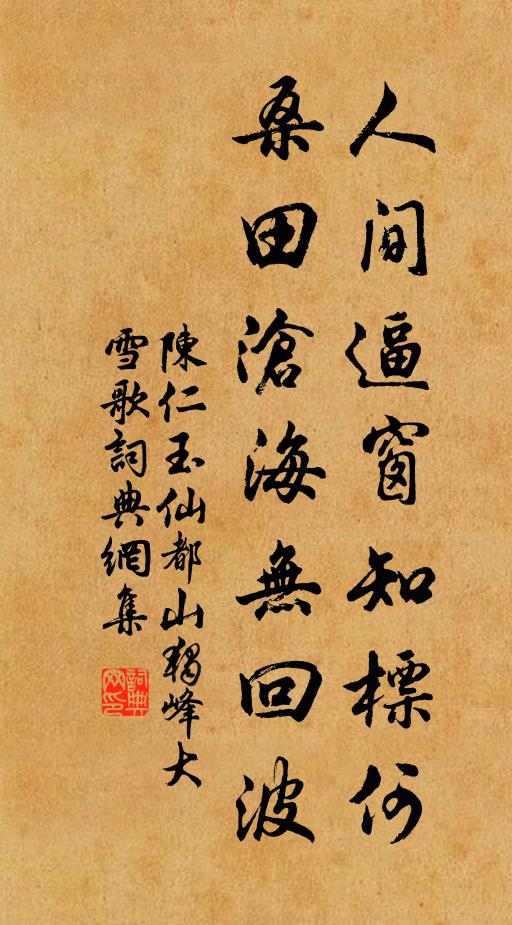 人間逼窗知標何
桑田滄海無回波
陳仁玉仙都山獨峰大
雪歌詞典網集
詞典
网印